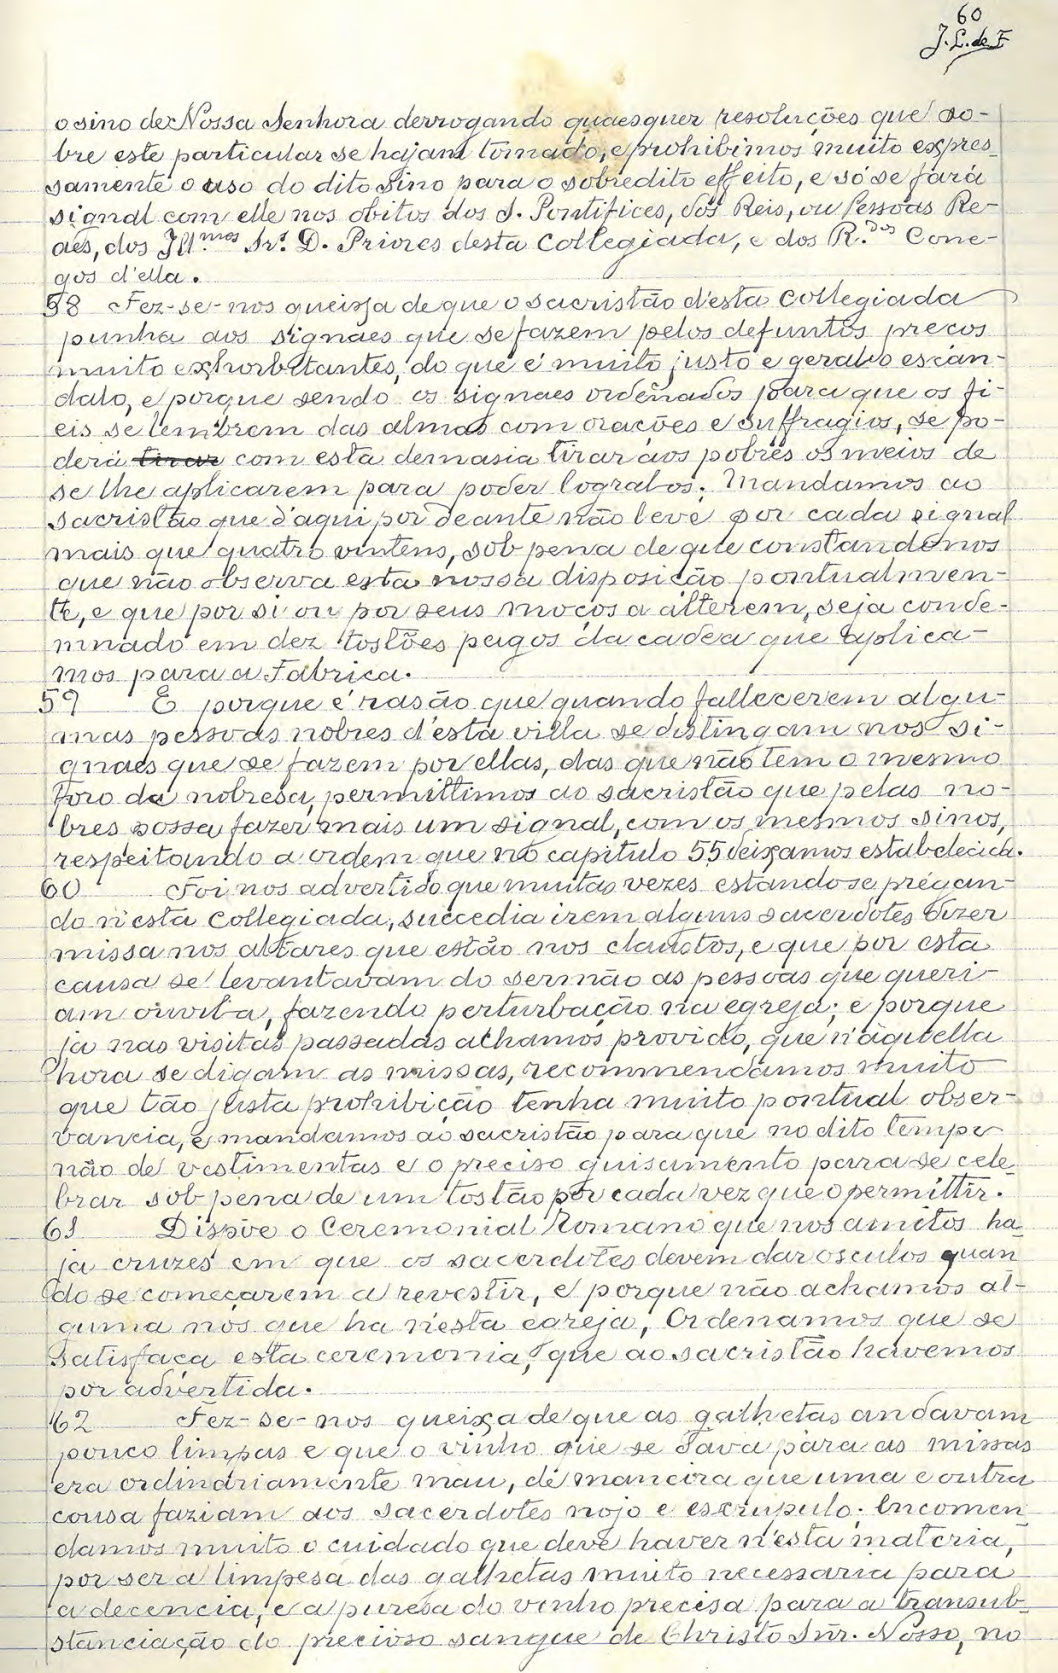 60
J. L. de F
o sino de Nossa Senhora derrogando quaesquer resoluções que so-
bre este particular se hajam tomado, e prohibimos muito expres-
samente o uso do dito sino para o sobredito effeito, e só se fará
signal com elle nos obitos dos S. Pontifices, dos Reis, ou Pessoas Re-
aes, dos Ill.mos Srs. D. Priores desta Collegiada, e dos R.dos Cone-
gos d'ella.
58 Fez-se-nos queixa de que o sacristão d'esta Collegiada
punha aos signaes que se fazem pelos defuntos preços
muito exhorbitantes, do que é muito justo e geral o escan-
dalo, e porque sendo os signaes ordenados para que os fi-
eis se lembrem das almas com orações e suffragios, se po-
derá tirar com esta demasia tirar aos pobres os meios de
se lhe aplicarem para poder logral-os; Mandamos ao
sacristão que d'aqui por deante não leve por cada signal
mais que quatro vintens, sob pena de que constando nos
que não observa esta nossa disposição pontualmen-
te, e que por si ou por seus moços a alterem, seja conde-
mnado em dez tostões pagos da cadea que aplica-
mos para a Fabrica.
59 E porque é rasão que quando fallecerem algu-
mas pessoas nobres d'esta villa se distingam nos si-
gnaes que se fazem por ellas, das que não tem o mesmo
foro da nobresa, permittimos ao sacristão que pelas no-
bres possa fazer mais um signal, com os mesmos sinos,
respeitando a ordem que no capitulo 55 deixamos estabelecida.
60 Foi nos advertido que muitas vezes estando se prégan-
do n'esta Collegiada, succedia irem alguns sacerdotes dizer
missa nos altares que estão nos claustos, e que por esta
causa se levantavam do sermão as pessoas que queri-
am ouvil-a, fazendo perturbação na egreja; e porque
já nas visitas passadas achamos provido, que n'aquella
hora se digam as missas, recommendamos muito
que tão justa prohibição tenha muito pontual obser-
vancia, e mandamos ao sacristão para que no dito tempo
não dê vestimentas e o preciso guisamento para se cele-
brar sob pena de um tostão por cada vez que o permittir.
61 Dispõe o Ceremonial Romano que nos amitos ha-
ja cruzes em que os sacerdotes devem dar osculos quan
do se começarem a revestir, e porque não achamos al-
guma nos que ha n'esta egreja, Ordenamos que se
satisfaça esta ceremonia, que ao sacristão havemos
por advertida.
62 Fez-se-nos queixa de que as galhetas andavam
pouco limpas e que o vinho que se dava para as missas
era ordinariamente mau, de maneira que uma e outra
cousa faziam aos sacerdotes nojo e escrupulo; Encomen
damos muito o cuidado que deve haver n'esta materia,
por ser a limpesa das galhetas muito necessaria para
a decencia, e a puresa do vinho precisa para a transub-
stanciação do precioso sangue de Christo Snr. Nosso, no